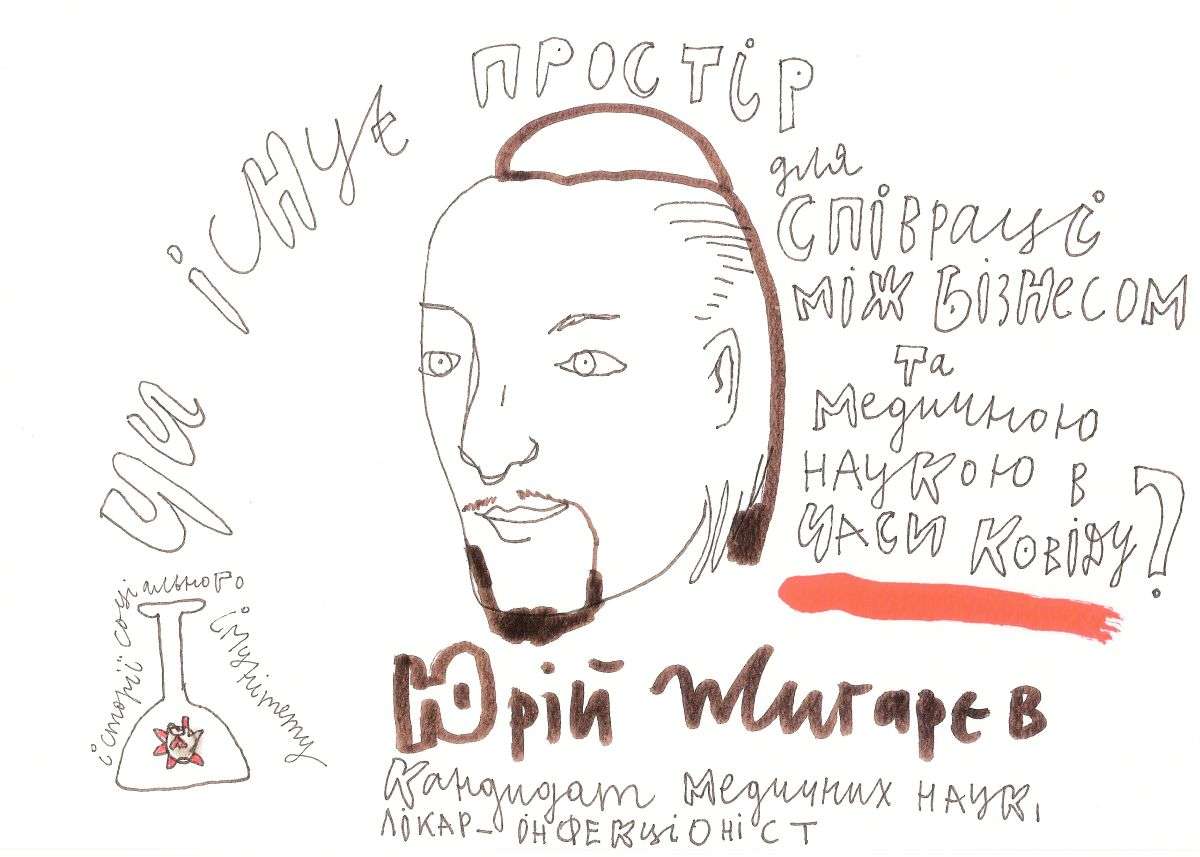 Чи існує простір
для
співраці
між бізнесом
та
медичною
наукою в
часи Ковіду?
історії соціального імунітету
Юрій Жигарєв
Кандидат медичних наук,
лікар-інфекціоніст